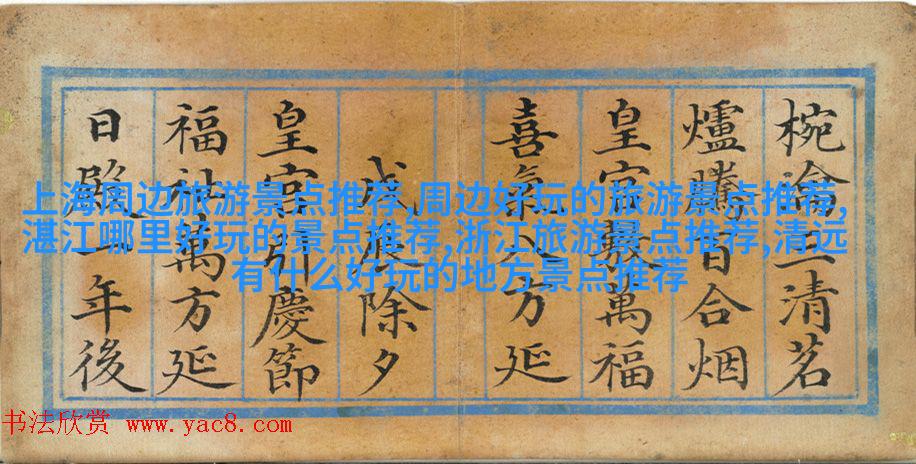 椀瀹三清茗
爐騰百合烟
皇宫敷萬福
喜氣八方延
戊辰除夕
皇宫引慶節
福祉萬方延
日一年後
上海周边旅游景点推荐,周边好玩的旅游景点推荐,
湛江哪里好玩的景点推荐,浙江旅游景点推荐,清远
有什么好玩的地方景点推荐
书法欣赏 www.yac8.com